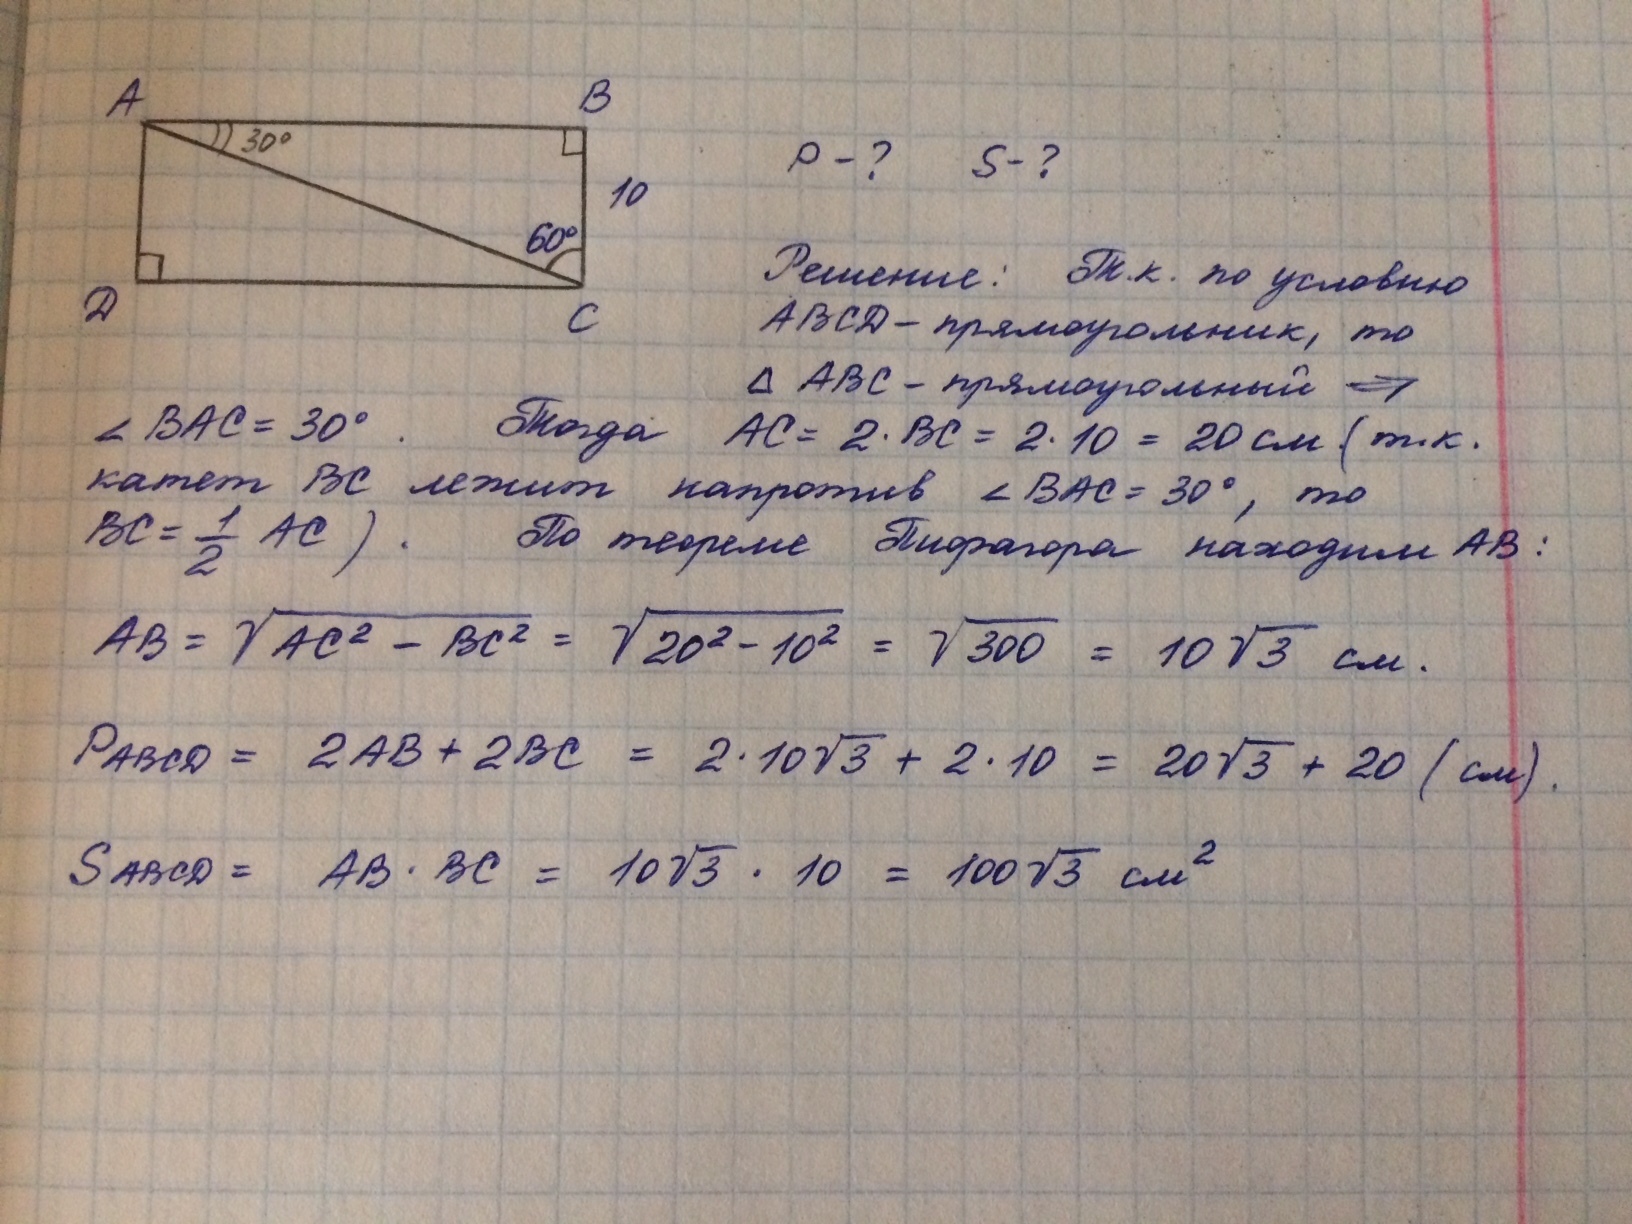 A B
30°
10
60°
D C
P - ? S - ?
Решение: Т.к. по условию
ABCD - прямоугольник, то
Δ ABC - прямоугольный ⇒
∠ BAC = 30° . Тогда AC = 2 · BC = 2 · 10 = 20 см (т.к.
катет BC лежит напротив ∠ BAC = 30°, то
BC = 1/2 AC ) . По теореме Пифагора находим AB :
AB = √(AC² - BC²) = √(20² - 10²) = √300 = 10√3 см .
P ABCD = 2AB + 2BC = 2 · 10√3 + 2 · 10 = 20√3 + 20 ( см) .
S ABCD = AB · BC = 10√3 · 10 = 100√3 см²